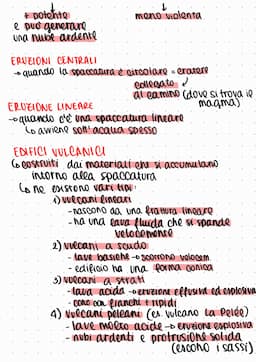 + potente meno violenta
e può generare
una nube ardente
ERUZIONI CENTRALI
→ quando la spaccatura è circolare = cratere
collegato
al camino (dove si trova il
magma)
ERUZIONE LINEARE
→ quando c'è una spaccatura lineare
↳ avviene sott'acqua spesso
EDIFICI VULCANICI
↳ costruiti dai materiali che si accumulano
intorno alla spaccatura
↳ ne esistono vari tipi:
1) vulcani lineari
- nascono da una frattura lineare
- ha una lava fluida che si spande
velocemente
2) vulcani a scudo
- lave basiche → scorrono velocem.
- edificio ha una forma conica
3) vulcani a strati
- lava acida → eruzione effusiva ed esplosiva
- cono con fianchi + ripidi
4) vulcani peleani (es. vulcano La Pelée)
- lave molto acide → eruzione esplosiva
- nubi ardenti e protrusione solida
(escono i sassi)